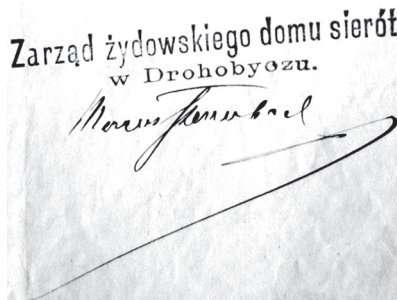 Zarząd żydowskiego domu sierót
w Drohobyczu.